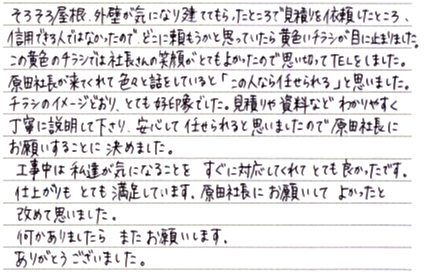 そろそろ屋根、外壁が気になり建ててもらったところで見積りを依頼したところ、
信用できる人ではなかったので、どこに頼もうかと思っていたら黄色いチラシが目に止まりました。
この黄色のチラシでは社長さんの笑顔がとてもよかったので思い切ってTELをしました。
原田社長が来てくれて色々と話をしていると「この人なら任せられる」と思いました。
チラシのイメージどおり、とても好印象でした。見積りや資料など わかりやすく
丁寧に説明して下さり、安心して任せられると思いましたので原田社長に
お願いすることに決めました。
工事中は私達が気になることを すぐに対応してくれてとても良かったです。
仕上がりも とても満足しています。原田社長にお願いして よかったと
改めて思いました。
何かありましたら またお願いします。
ありがとうございました。